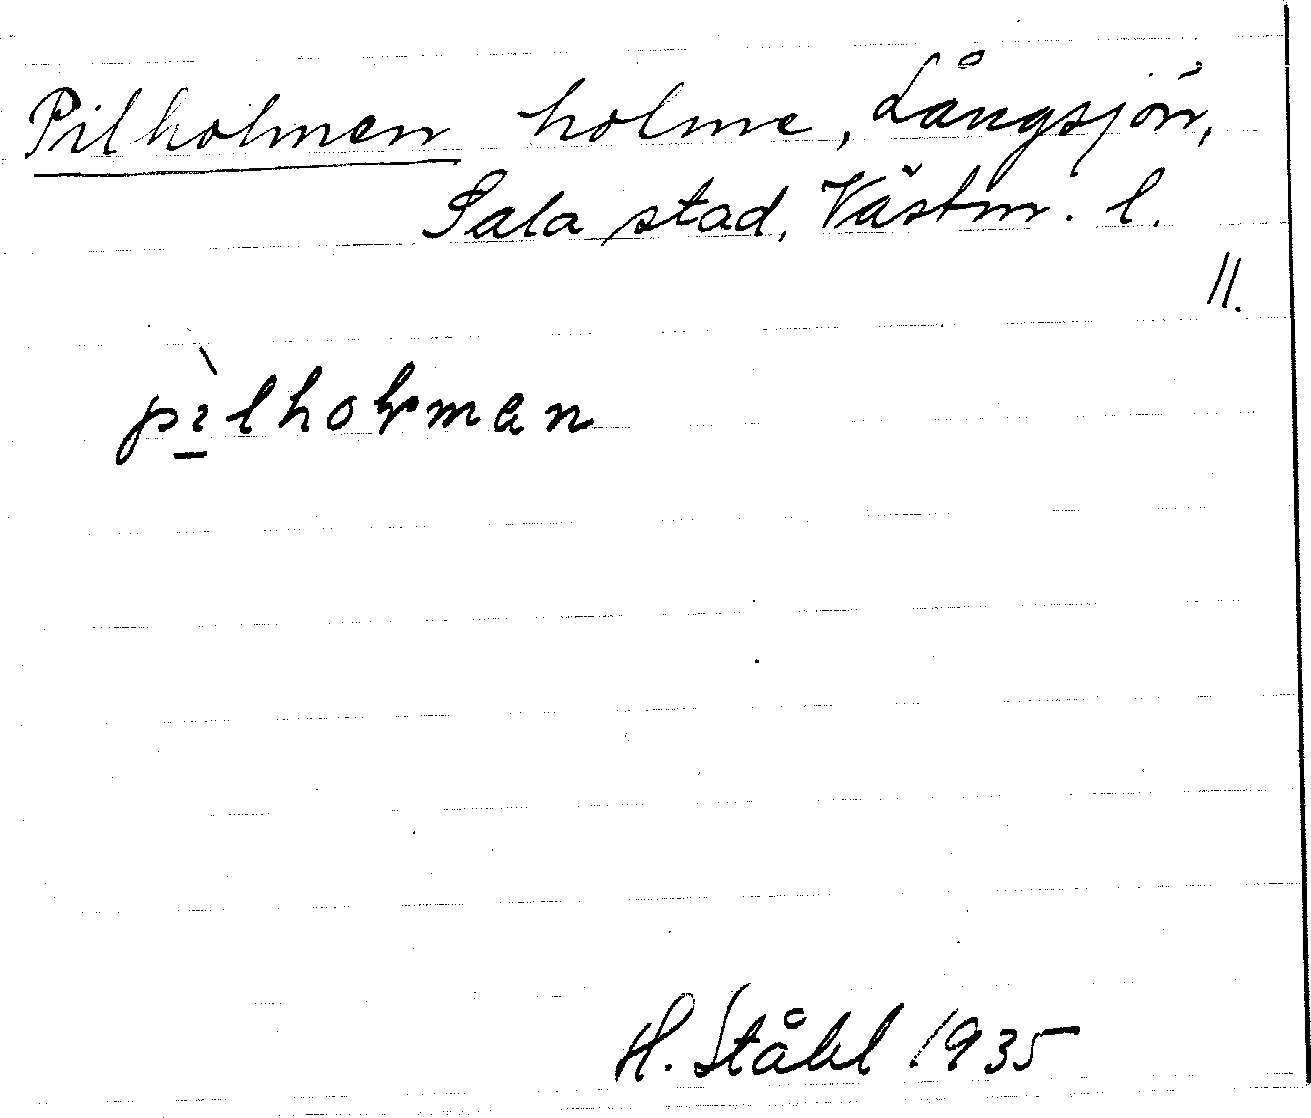 Pilholmen holme, Långsjön,
Sala stad, Västm. l.
11.
pìlholman
H. Ståhl 1935